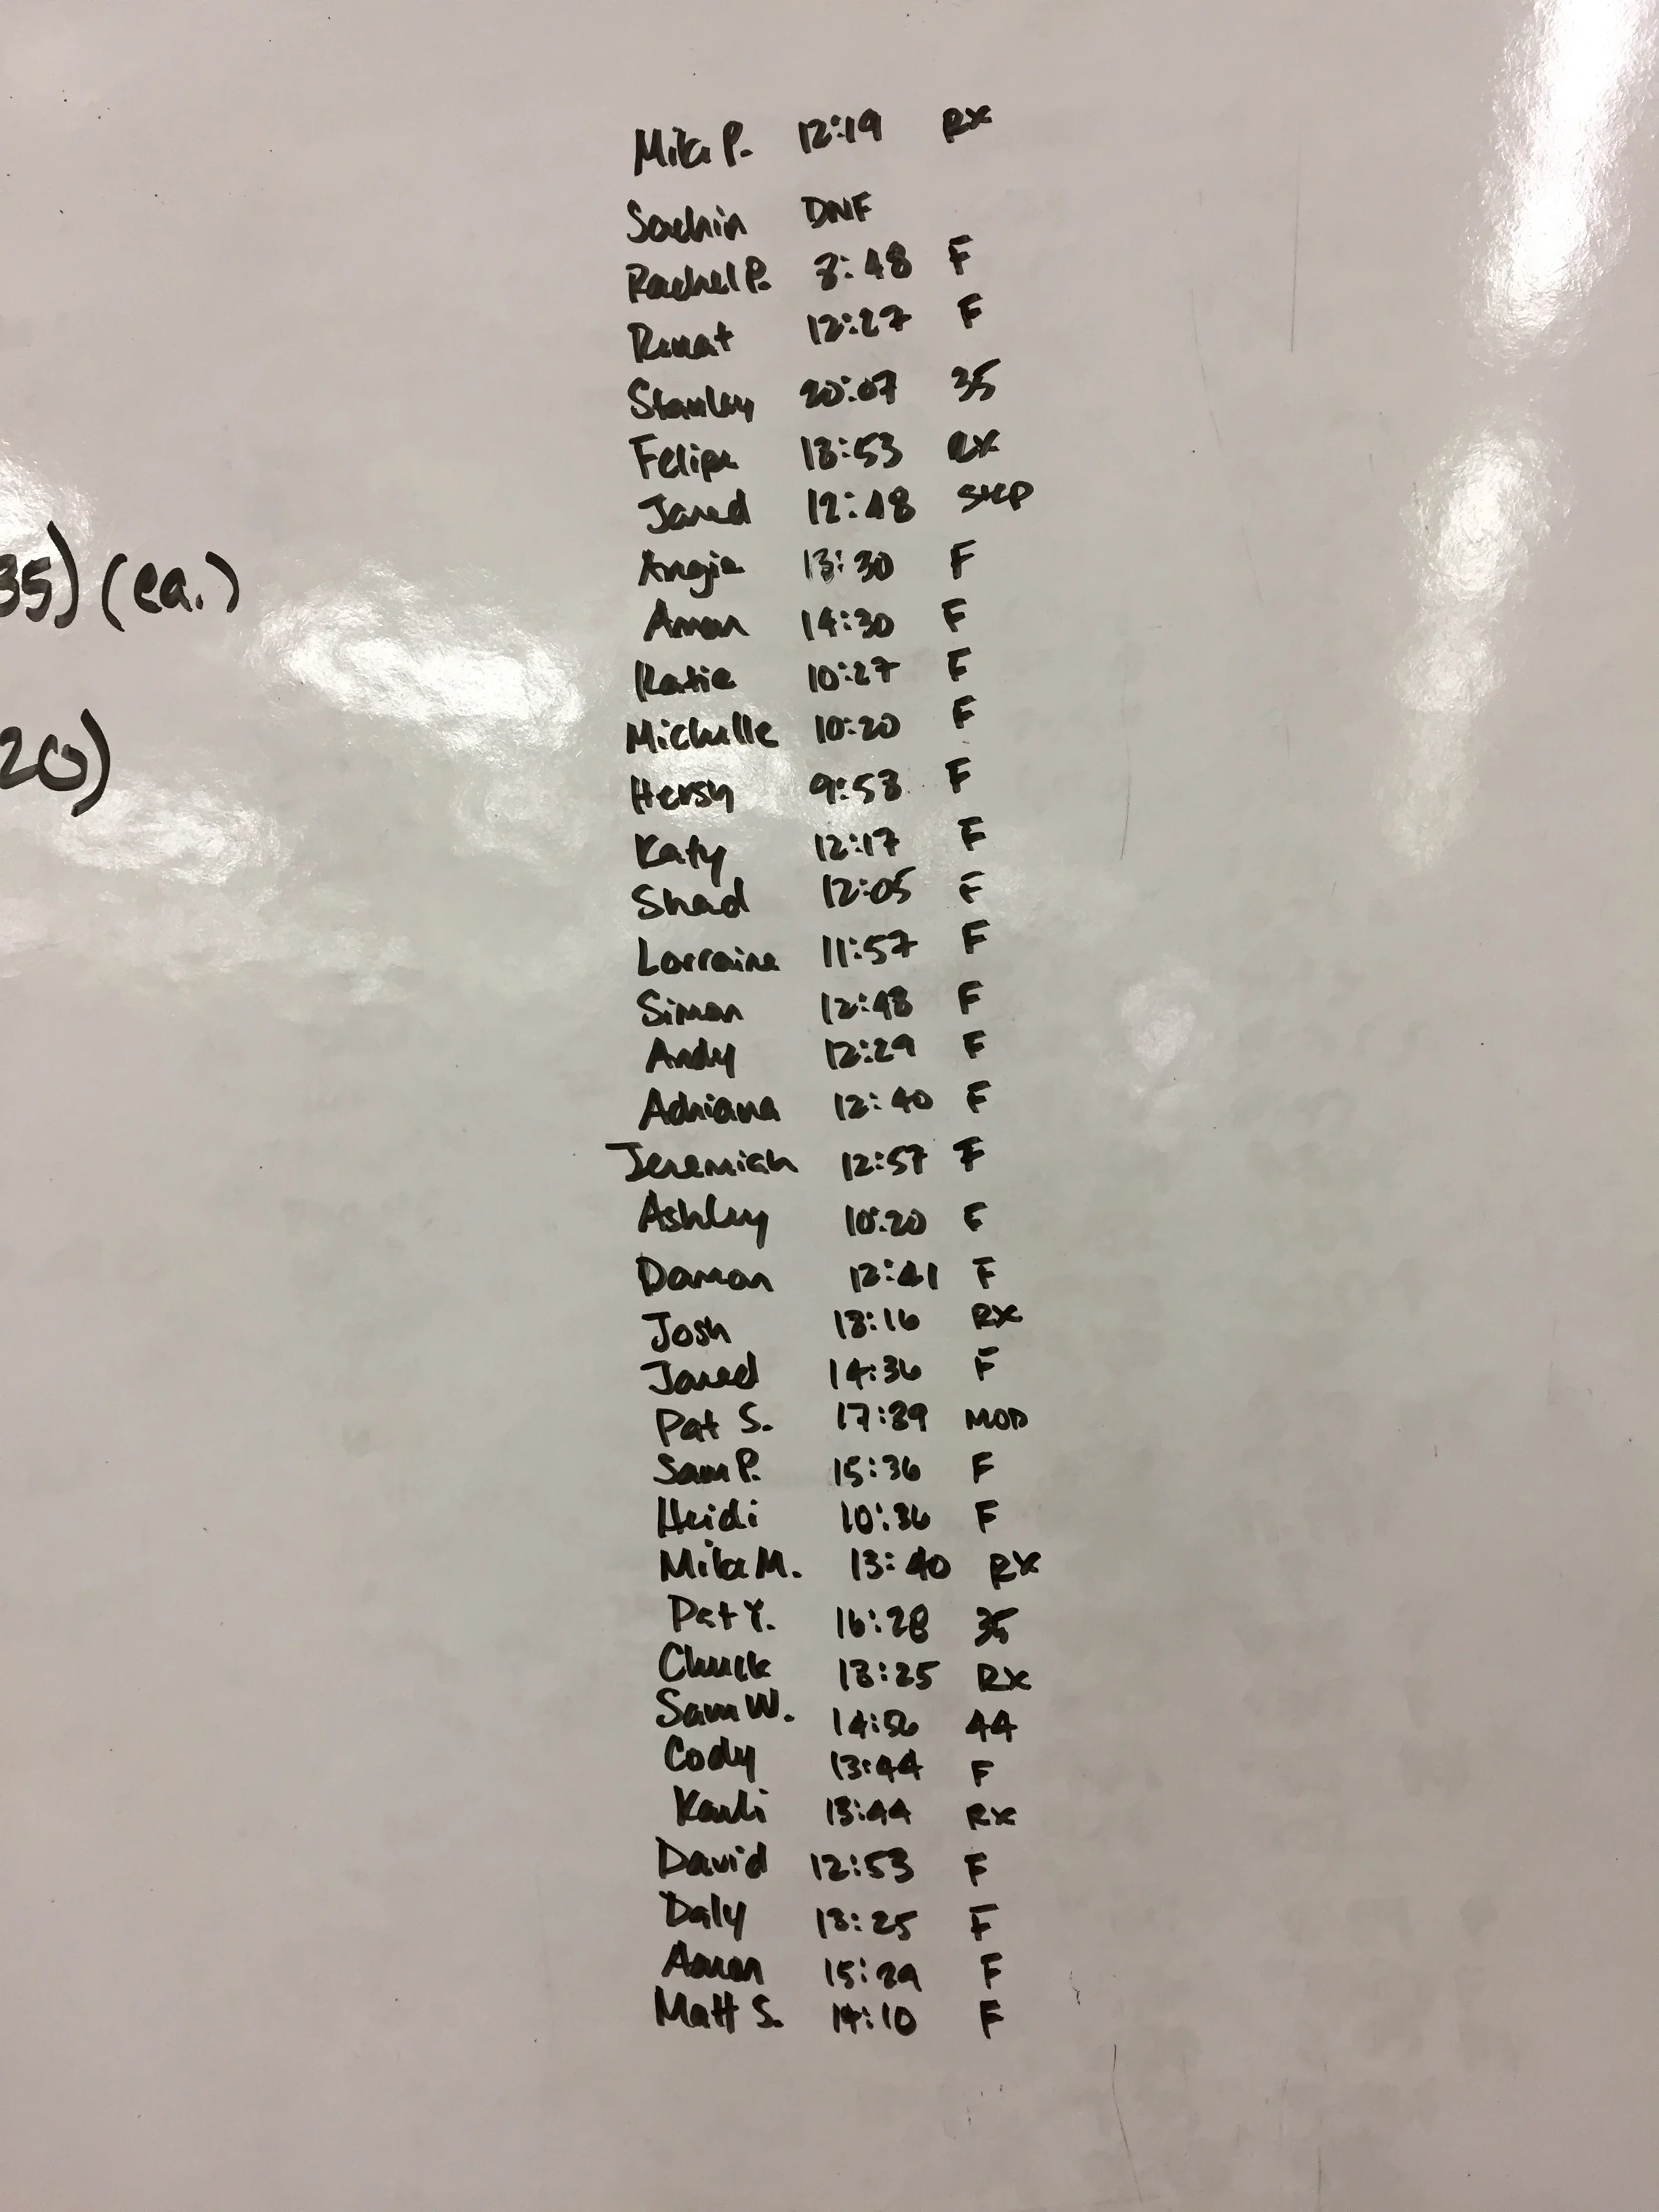 35) (ea.)
20)
Mike P. 12:19 RX
Sachin DNF
Rachel P. 8:48 F
Renat 12:27 F
Stanley 20:07 35
Felipe 13:53 RX
Jared 12:48 STEP
Angie 13:30 F
Aman 14:30 F
Katie 10:27 F
Michelle 10:20 F
Hersh 9:58 F
Katy 12:17 F
Shad 12:05 F
Lorraine 11:57 F
Simon 12:48 F
Andy 12:29 F
Adriana 12:40 F
Jeremiah 12:57 F
Ashley 10:20 F
Damon 12:41 F
Josh 13:16 RX
Jared 14:36 F
Pat S. 17:39 MOD
Sam P. 15:36 F
Heidi 10:36 F
Mike M. 13:40 RX
Pat Y. 16:28 35
Chuck 13:25 RX
Sam W. 14:56 44
Cody 13:44 F
Karli 13:44 RX
David 12:53 F
Daly 13:25 F
Aaron 15:29 F
Matt S. 14:10 F